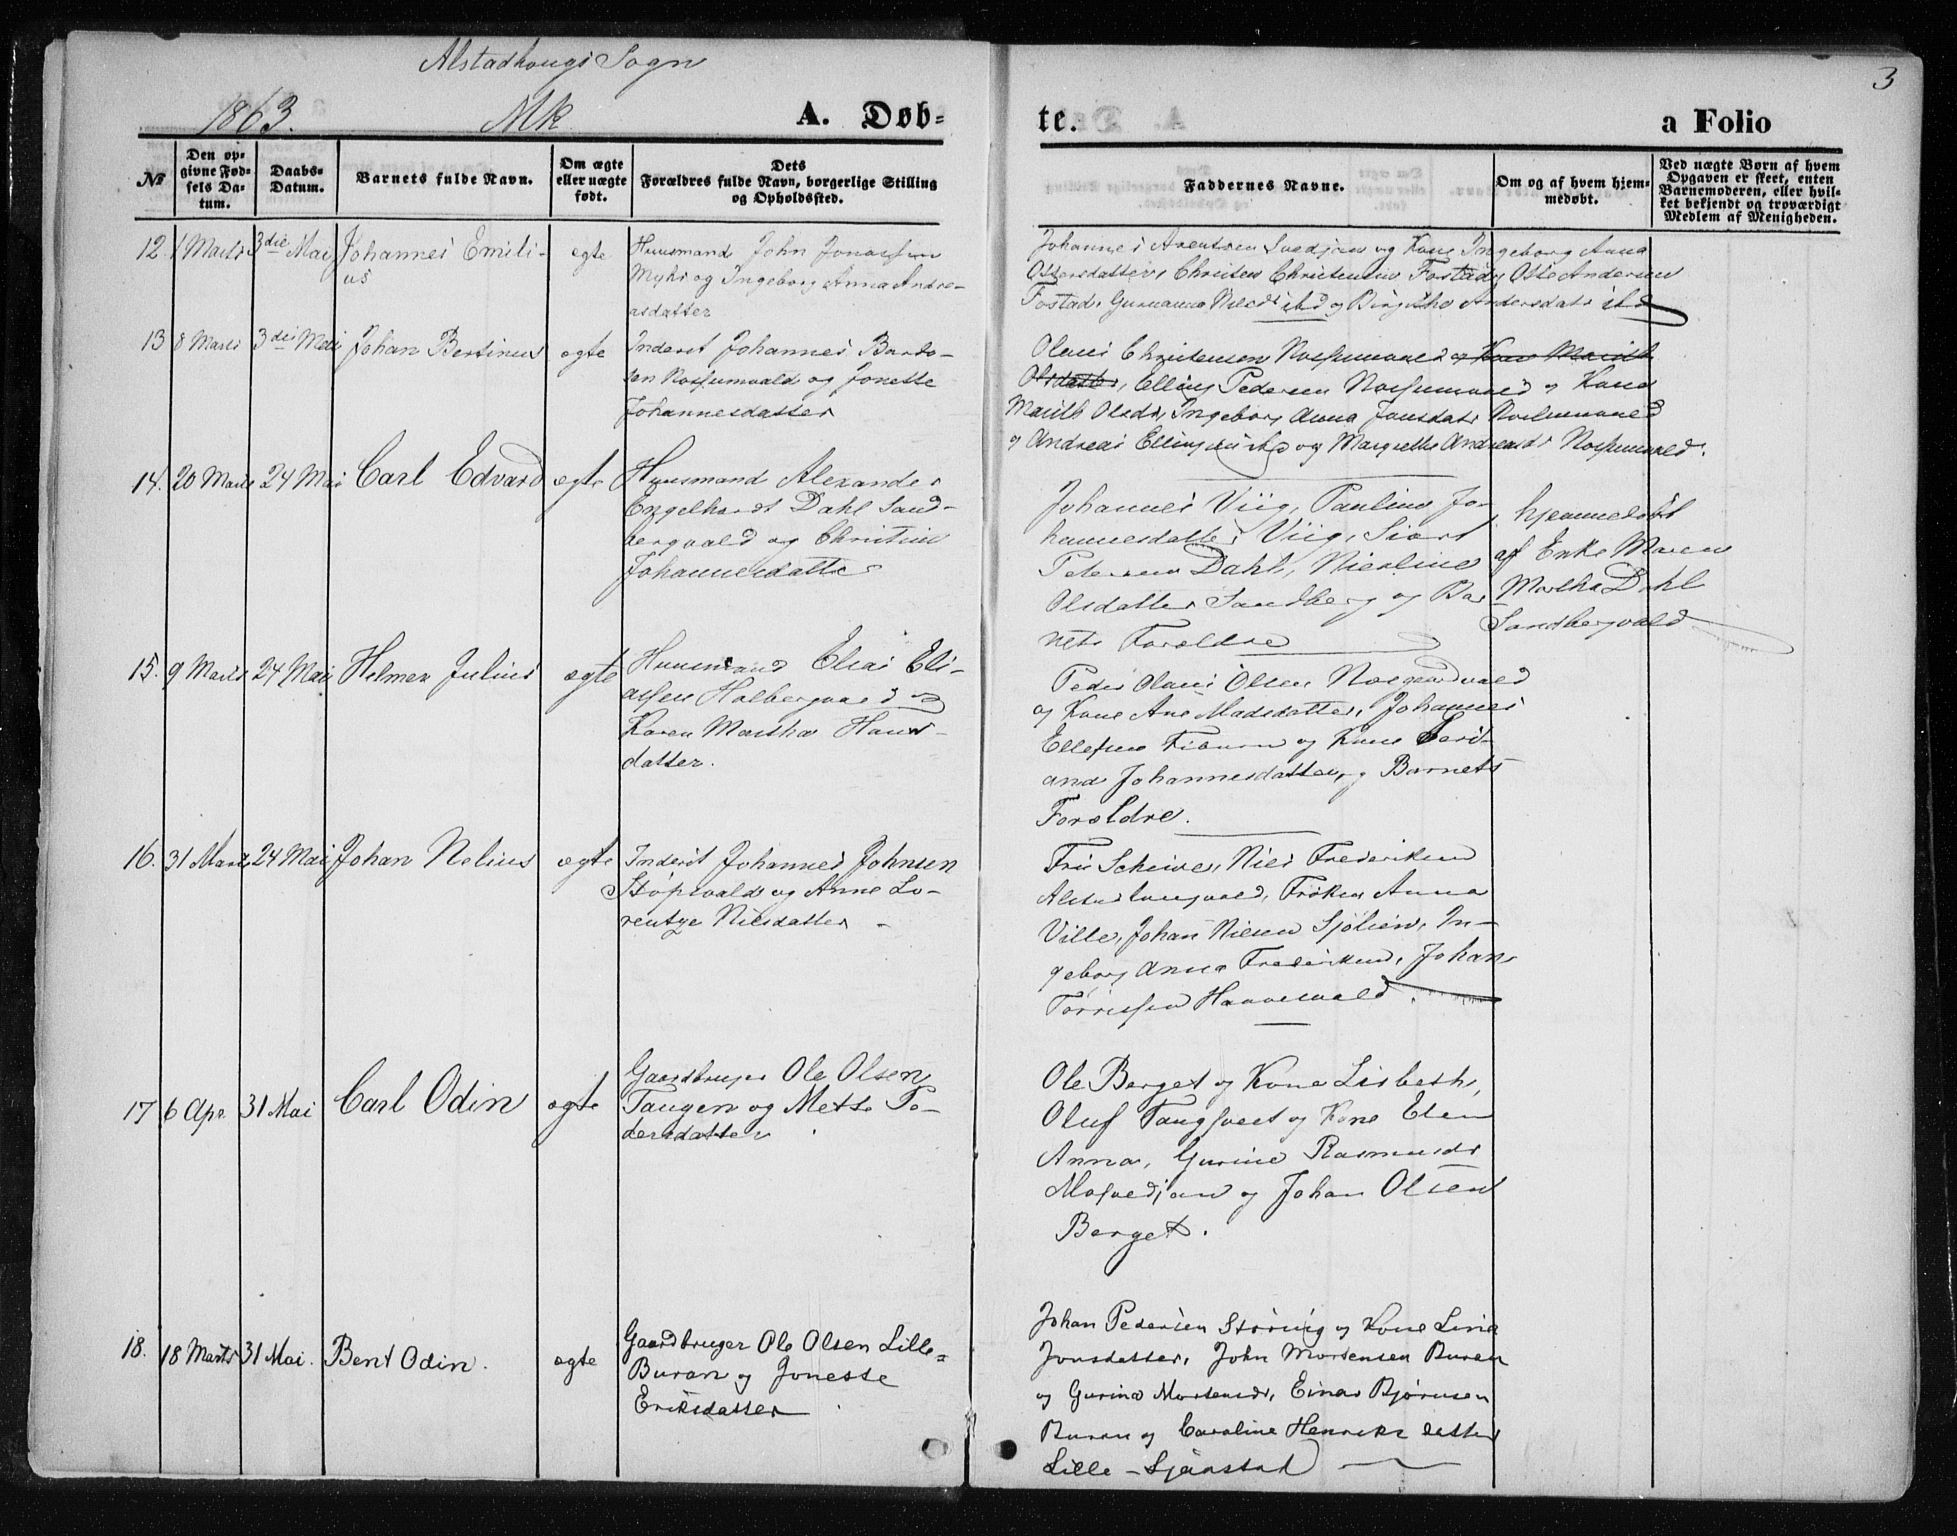 Alstadhougs Sogn
3
1863.
Mk
A. Døb-
te.
a Folio
No
Den op-
givne Fød-
sels Da-
tum.
Daabs-
Datum.
Barnets fulde Navn.
Om ægte
eller uægte
født.
Dets
Forældres fulde Navn, borgerlige Stilling
og Opholdssted.
Faddernes Navne.
Om og af hvem hjem-
medøbt.
Ved uægte Børn af hvem
Opgaven er skeet, enten
Barnemoderen, eller hvil-
ket bekjendt og troværdigt
Medlem af Menigheden.
12. 1 Marts 3die Mai Johannes Emili-
us
egte
Huusmand John Jonassen
Myhr og Ingeborg Anna Andre-
asdatter
Johannes Arentsen og Kone Ingeborg Anna
Ottersdatter, Christen Christensen Fostad, Otte Andersen
Fostad, Gurianna Nilsd. ibd og Birgithe Andersdatr ibd
13 8 Marts 3die Mai Johan Bertinus egte
Inderst Johannes Bardo-
sen Rosfumvald og Jonette
Johannesdatter
Olaus Christensen og Kone Marith
Olsdatter, Elling Pedersen og Kone
Marith Olsdr, Ingeborg Anna Jonsdatr
og Andreas Ellingsen ibd og Margrethe Andreasdr
14. 20 Marts 24 Mai Carl Edvard egte
Huusmand Alexander
Engelhardt Dahl Sand-
bergvald og Christine
Johannesdatter
Johannes Viig, Pauline Jo-
hannesdatter Viig, Siort
Petersen Dahl, Nicoline
Olsdatter Sandberg og Bar-
nets Forældre
hjemmedøbt
af Enke Maren
Martha Dahl
Sandbergvald
15. 9 Marts 24 Mai Helmer Julius egte
Huusmand Elias Eli-
assen Halbergvald og
Karen Martha Hans-
datter.
Peder Olaus Olsen Norgaardvald
og Kone Ane Madsdatter, Johannes
Ellefsen og Kone Beri-
ane Johannesdatter og Barnets
Forældre.
16. 31 Marts 24 Mai Johan Nelius egte
Inderst Johannes Johnsen
Støpsvald og Anne Lo-
rentze Nilsdatter
Fru Scheive, Niels Frederiksen
Alstadhaugvald, Frøken Anna
Ville, Johan Nielsen Sjølien, In-
geborg Anna Frederiksen, Johan
Tørrissen
17 6 Apr 31 Mai Carl Odin egte
Gaardbruger Ole Olsen
Tangen og Mette Pe-
dersdatter
Ole Berget og Kone Lisbeth,
Oluf Tangsveet og Kone Elen
Anna, Gurine Rasmusdr
og Johan Olsen
Berget.
18. 18 Marts 31 Mai. Bent Odin. egte
Gaardbruger Ole Olsen Lille-
Buran og Jonette
Eriksdatter
Johan Pedersen Støring og Kone Lina
Jonsdatter, John Mortensen Buran
og Gurine Mortensdr, Einar Bjørnsen
Buran og Caroline Henriksdatter
Lille-Sjørstad